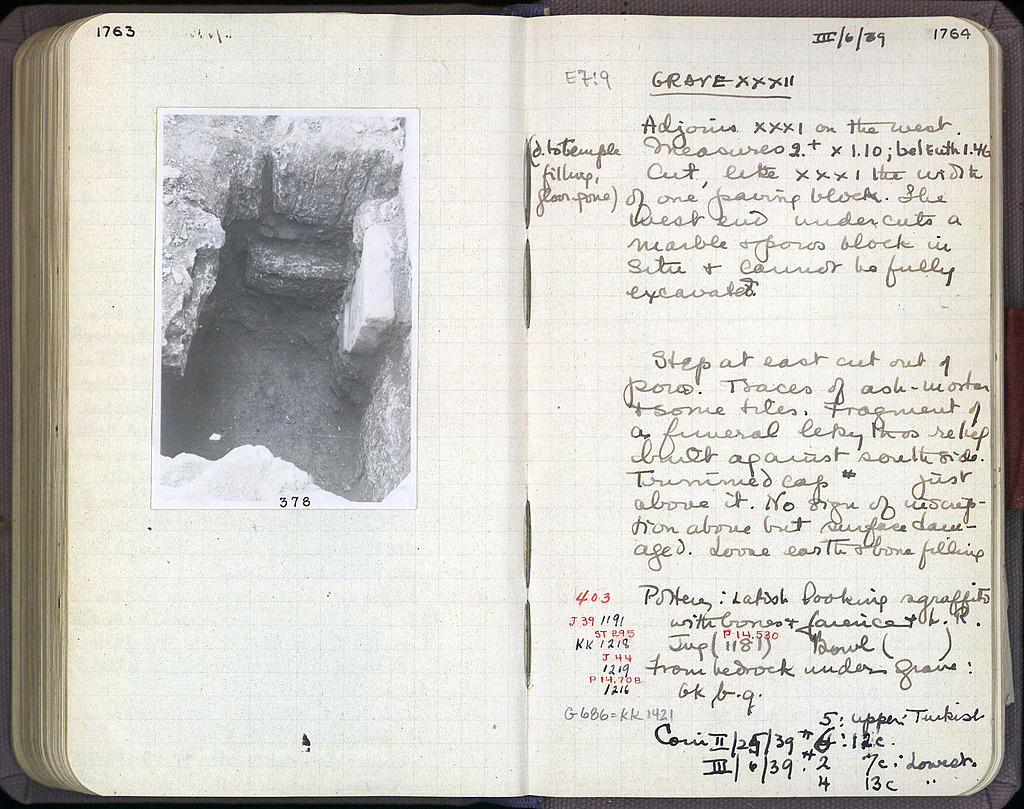 1763
378
III/6/39 1764
E7:9 GRAVE XXXII
Adjoins XXXI on the west.
(d. to temple
filling,
floor gone)
Measures 2.+ x 1.10; bel Euth 1.46
Cut, like XXXI the width
of one paving block. The
west end undercuts a
marble + poros block in
situ + cannot be fully
excavated.
Step at east cut out of
poros. Traces of ash-mortar
+ some tiles. Fragment of
a funeral lekythos relief
built against south side.
Trimmed cap # just
above it. No sign of inscrip-
tion above but surface dam-
aged. Loose earth + bone filling
403 Pottery: Latish looking sgraffito
J 39 1191 with bones + faience + L.R.
ST 295 P 14,530
KK 1218 Jug (1181) Bowl ( )
J 44
1219 From bedrock under grave:
P 14,708
1216 bk b.g.
G 686 = KK 1421
5: upper: Turkish
Coin II/25/39 # 6: 12c.
III/6/39: # 2 7c: Lowest
4 13c "